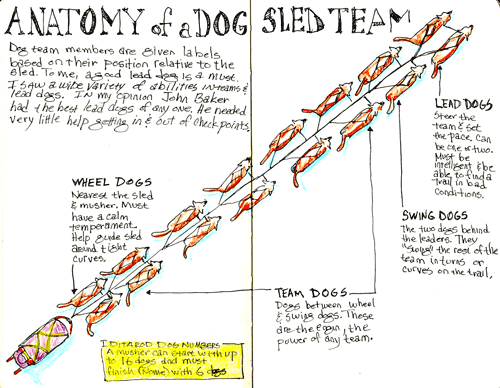 ANATOMY of a DOG SLED TEAM
Dog team members are given labels
based on their position relative to the
sled. To me, a good lead dog is a must.
I saw a wide variety of abilities in teams &
lead dogs. In my opinion John Baker
had the best lead dogs of any one. He needed
very little help getting in & out of checkpoints.
LEAD DOGS
Steer the
team & set
the pace. Can
be one or two.
Must be
intelligent & be
able to find a
trail in bad
conditions.
WHEEL DOGS
Nearest the sled
& musher. Must
have a calm
temperament.
Help guide sled
around tight
curves.
SWING DOGS
The two dogs behind
the leaders. They
"swing" the rest of the
team in turns or
curves on the trail.
TEAM DOGS
Dogs between wheel
& swing dogs. These
are the the
power of any team.
IDITAROD DOG NUMBERS
A musher can start with up
to 16 dogs and must
finish (Nome) with 6 dogs